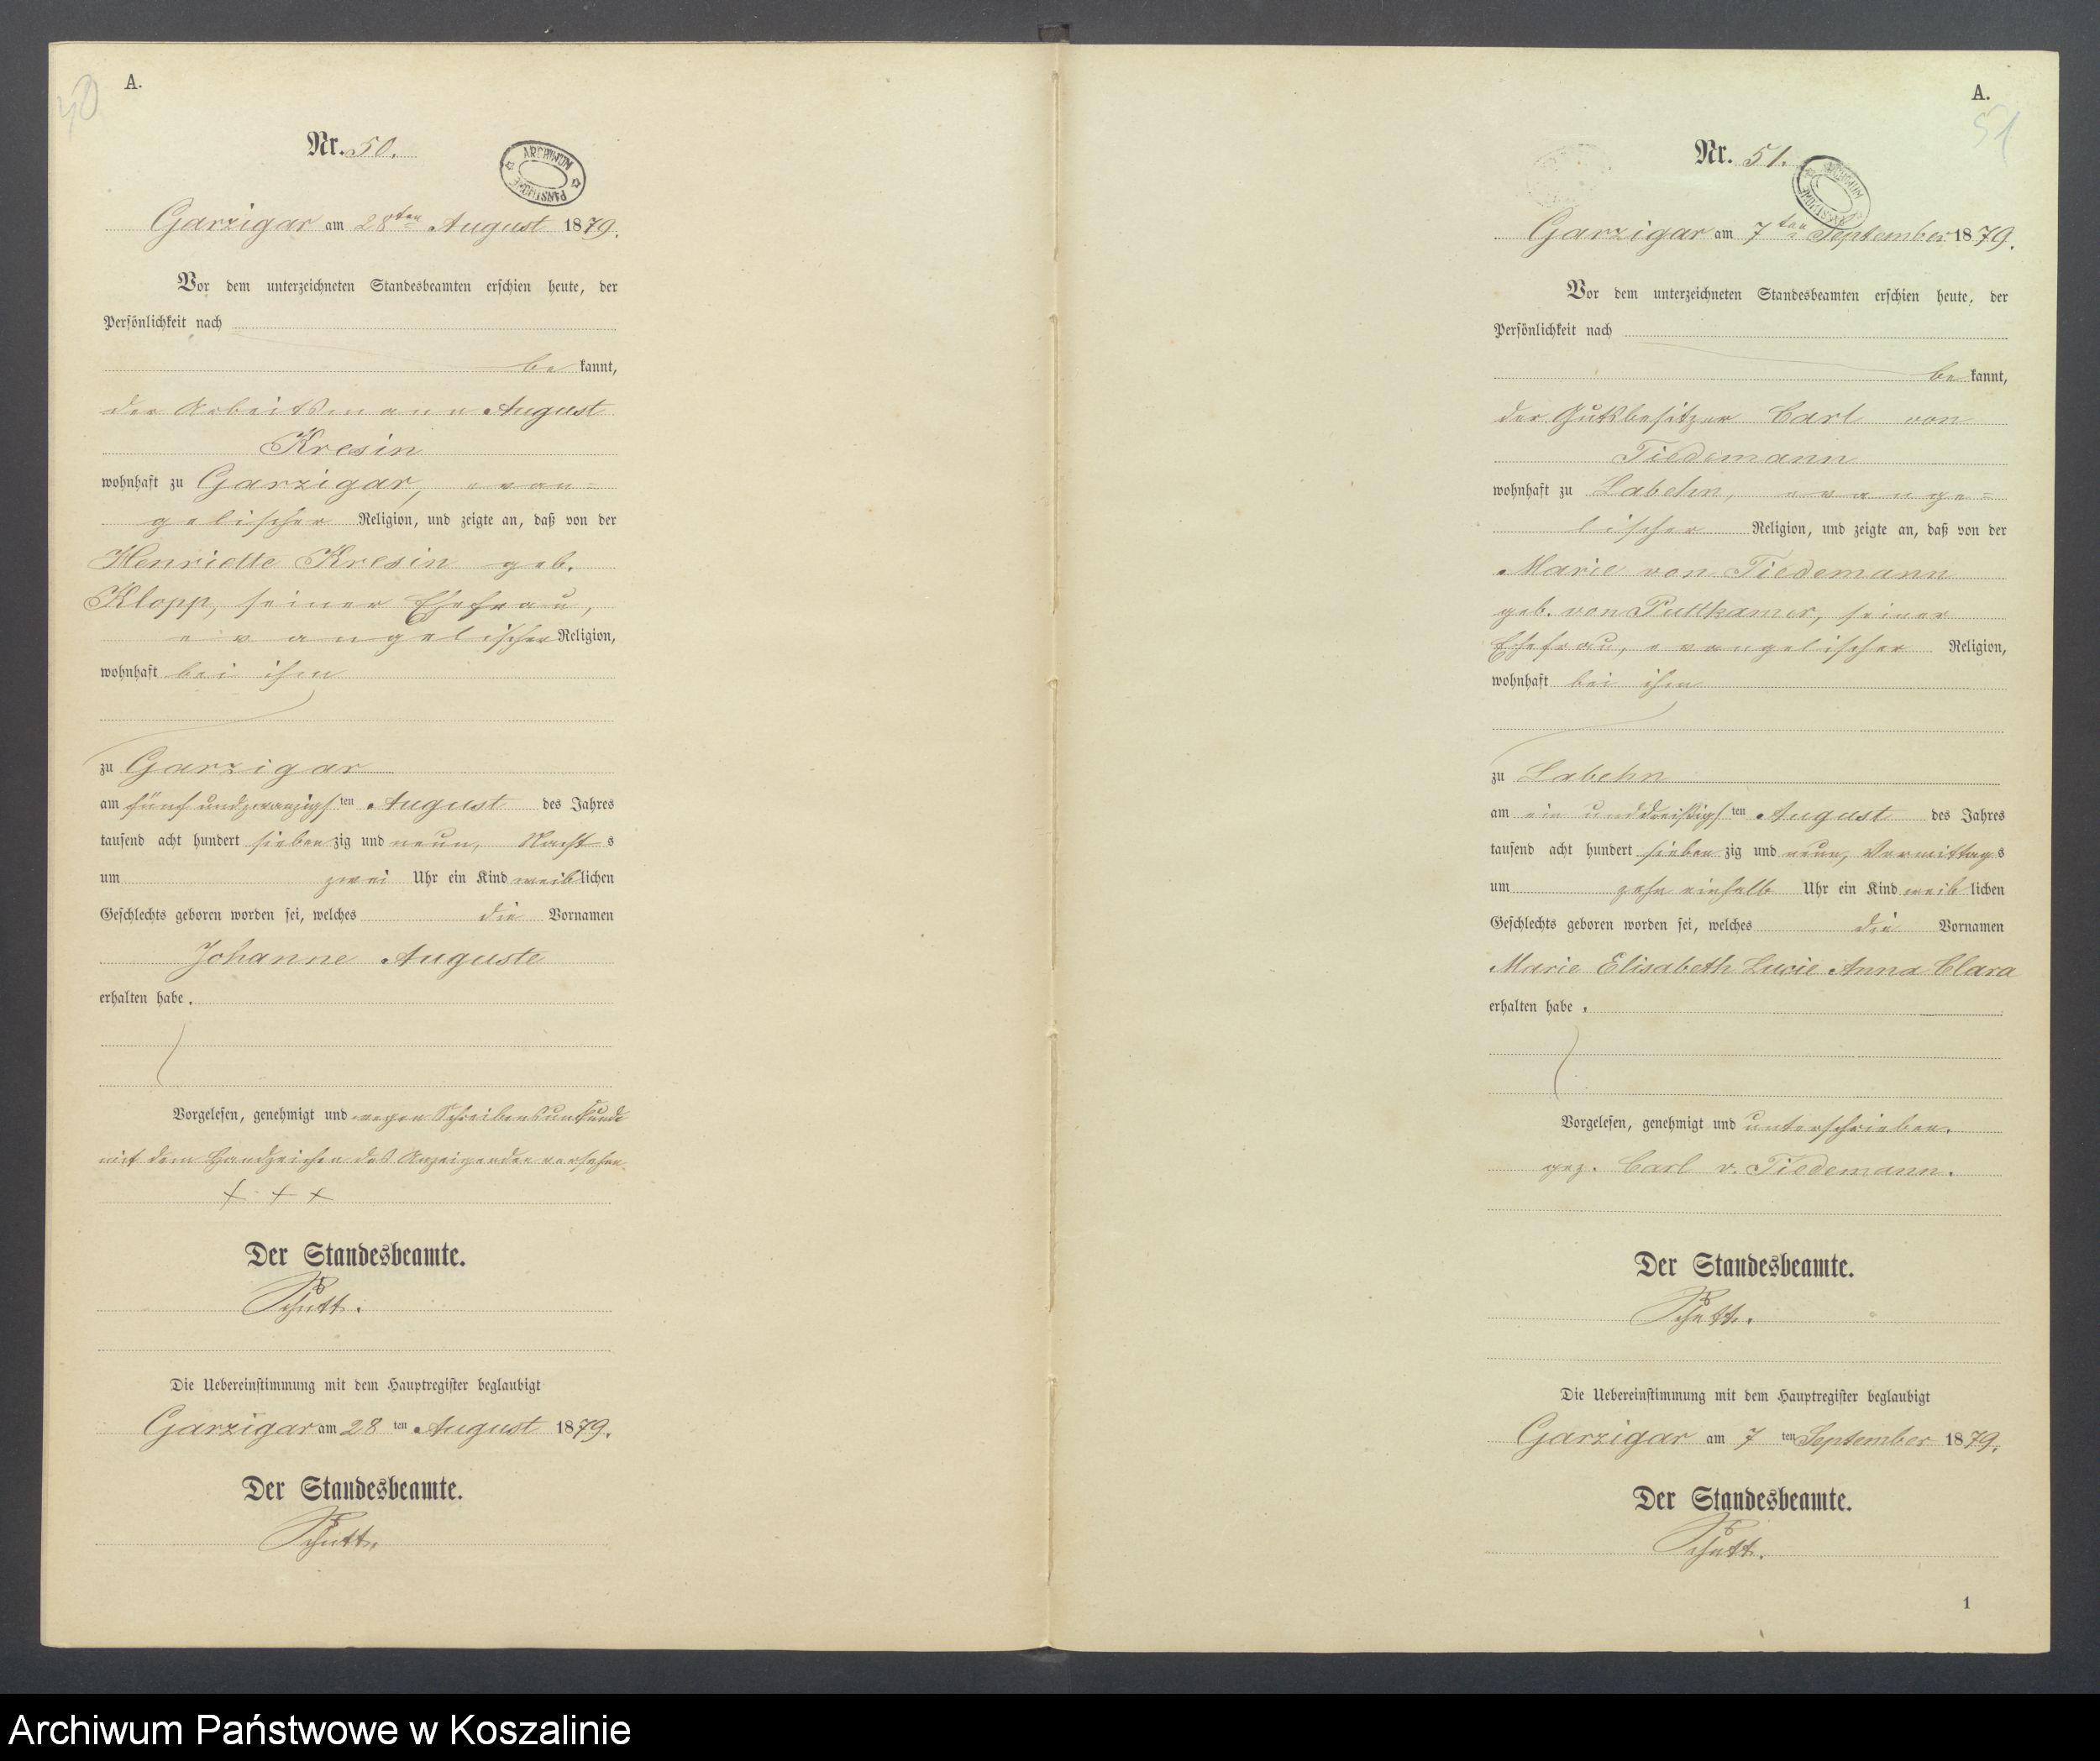 A.
50
Nr. 50.
ARCHIWUM PAŃSTWOWE
Garzigar am 28ten August 1879.
Vor dem unterzeichneten Standesbeamten erschien heute, der
Persönlichkeit nach
be kannt,
der Arbeitsmann August
Kresin
wohnhaft zu Garzigar, evan=
gelischer Religion, und zeigte an, daß von der
Henriette Kresin geb.
Klopp, seiner Ehefrau,
evangelischer Religion,
wohnhaft bei ihm
zu Garzigar
am fünf undzwanzigsten August des Jahres
tausend acht hundert siebenzig und neun, Nachts
um zwei Uhr ein Kind weiblichen
Geschlechts geboren worden sei, welches die Vornamen
Johanne Auguste
erhalten habe.
Vorgelesen, genehmigt und wegen Schreibensunkunde
mit dem Handzeichen des Anzeigenden versehen.
+ + +
Der Standesbeamte.
Schutt.
Die Uebereinstimmung mit dem Hauptregister beglaubigt
Garzigar am 28ten August 1879.
Der Standesbeamte.
Schutt.
A.
51
Nr. 51.
ARCHIWUM PAŃSTWOWE
Garzigar am 7ten September 1879.
Vor dem unterzeichneten Standesbeamten erschien heute, der
Persönlichkeit nach
be kannt,
der Gutsbesitzer Carl von
Tiedemann
wohnhaft zu Labehn, evange=
lischer Religion, und zeigte an, daß von der
Marie von Tiedemann
geb. von Puttkamer, seiner
Ehefrau, evangelischer Religion,
wohnhaft bei ihm
zu Labehn
am ein unddreißigsten August des Jahres
tausend acht hundert siebenzig und neun, Vormittags
um zehn einhalb Uhr ein Kind weiblichen
Geschlechts geboren worden sei, welches die Vornamen
Marie Elisabeth Lucie Anna Clara
erhalten habe.
Vorgelesen, genehmigt und unterschrieben.
gez. Carl v. Tiedemann.
Der Standesbeamte.
Schutt.
Die Uebereinstimmung mit dem Hauptregister beglaubigt
Garzigar am 7ten September 1879.
Der Standesbeamte.
Schutt.
1
Archiwum Państwowe w Koszalinie